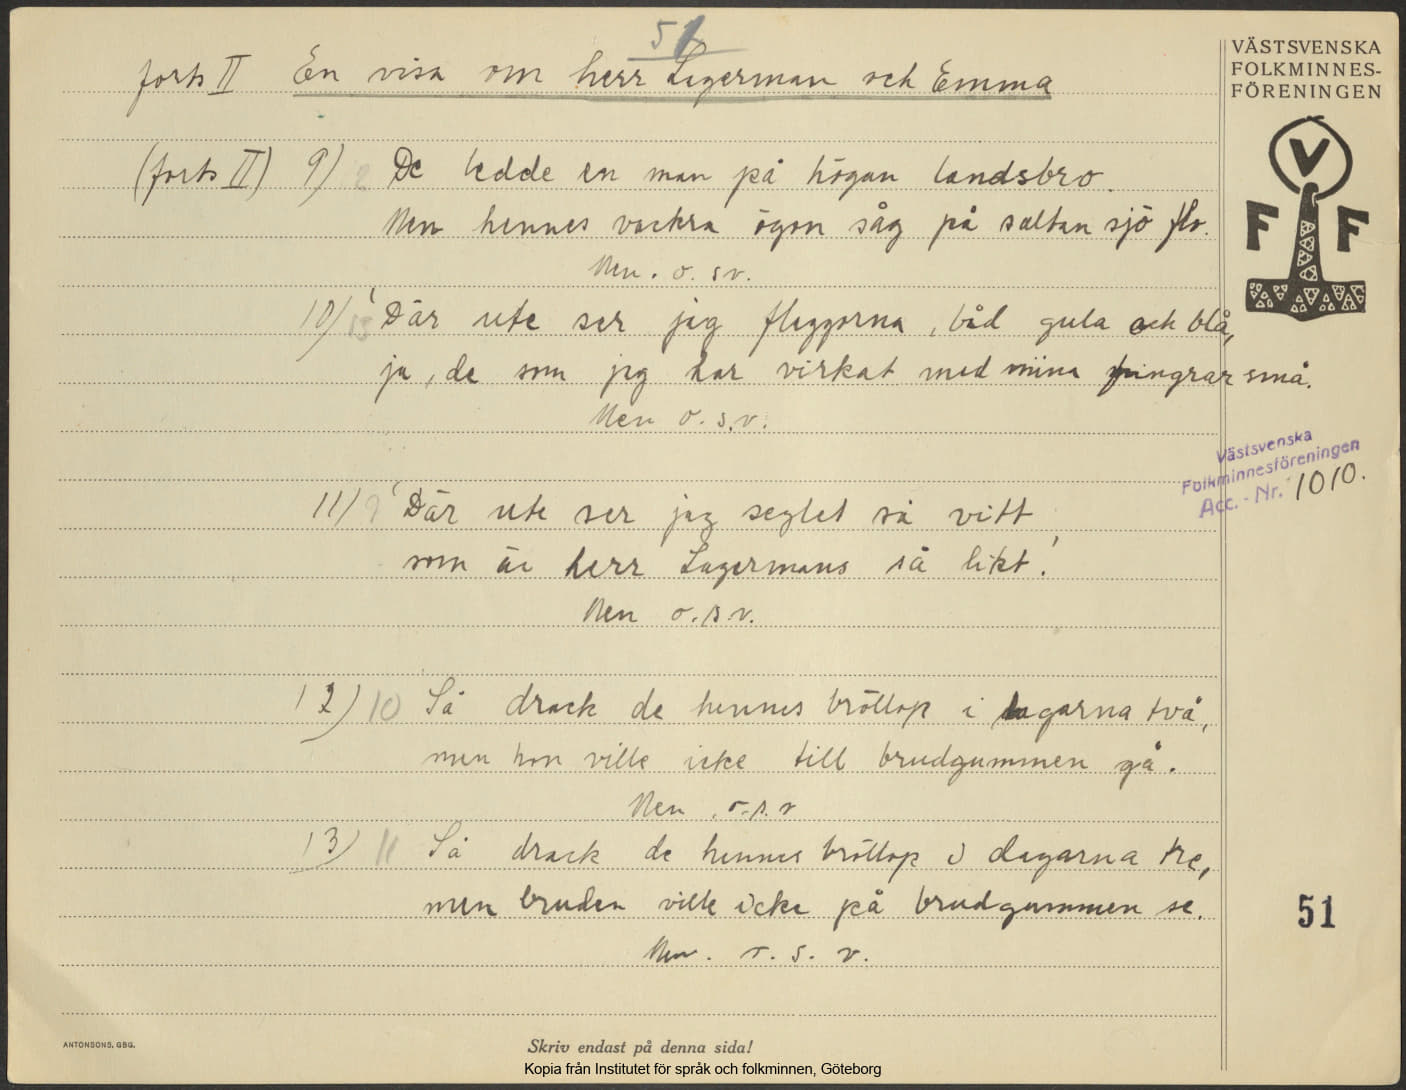 51
forts II En visa om herr Lagerman och Emma
(forts II) 9) De ledde en man på högan landsbro.
Men hennes vackra ögon såg på saltan sjö flo.
Men. o. sv.
10) Där ute ser jag flaggorna, båd gula och blå,
ja, de som jag har virkat med mina fingrar små.
Men o. s. v.
11) 9 Där ute ser jag seglet så vitt
som är herr Lagermans så likt!
Men o. s. v.
12) 10 Så drack de hennes bröllop i dagarna två,
men hon ville icke till brudgummen gå.
Men . o. s. v
13) 11 Så drack de hennes bröllop i dagarna tre,
men bruden ville icke på brudgummen se.
Men. o. s. v.
VÄSTSVENSKA
FOLKMINNES-
FÖRENINGEN
V
F F
Västsvenska
Folkminnesföreningen
Acc. - Nr. 1010.
51
ANTONSONS, GBG.
Skriv endast på denna sida!
Kopia från Institutet för språk och folkminnen, Göteborg